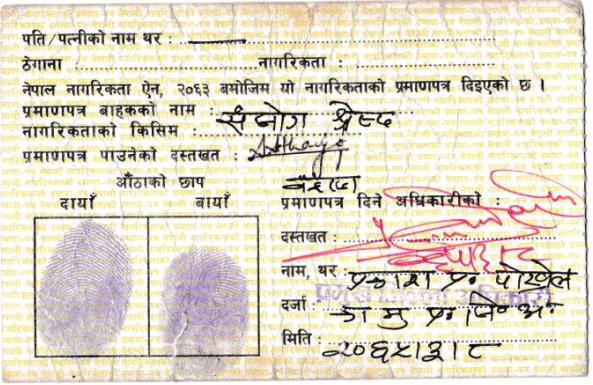 पति/पत्नीको नाम थर :
ठेगाना : नागरिकता :
नेपाल नागरिकता ऐन, २०६३ बमोजिम यो नागरिकताको प्रमाणपत्र दिइएको छ ।
प्रमाणपत्र बाहकको नाम : संजोग श्रेष्ठ
नागरिकताको किसिम :
प्रमाणपत्र पाउनेको दस्तखत :
औंठाको छाप
दायाँ बायाँ
प्रमाणपत्र दिने अधिकारीको :
दस्तखत :
नाम, थर : प्रकाश प्र. पोखरेल
दर्जा : का मु प्र. जि. अ.
मिति :